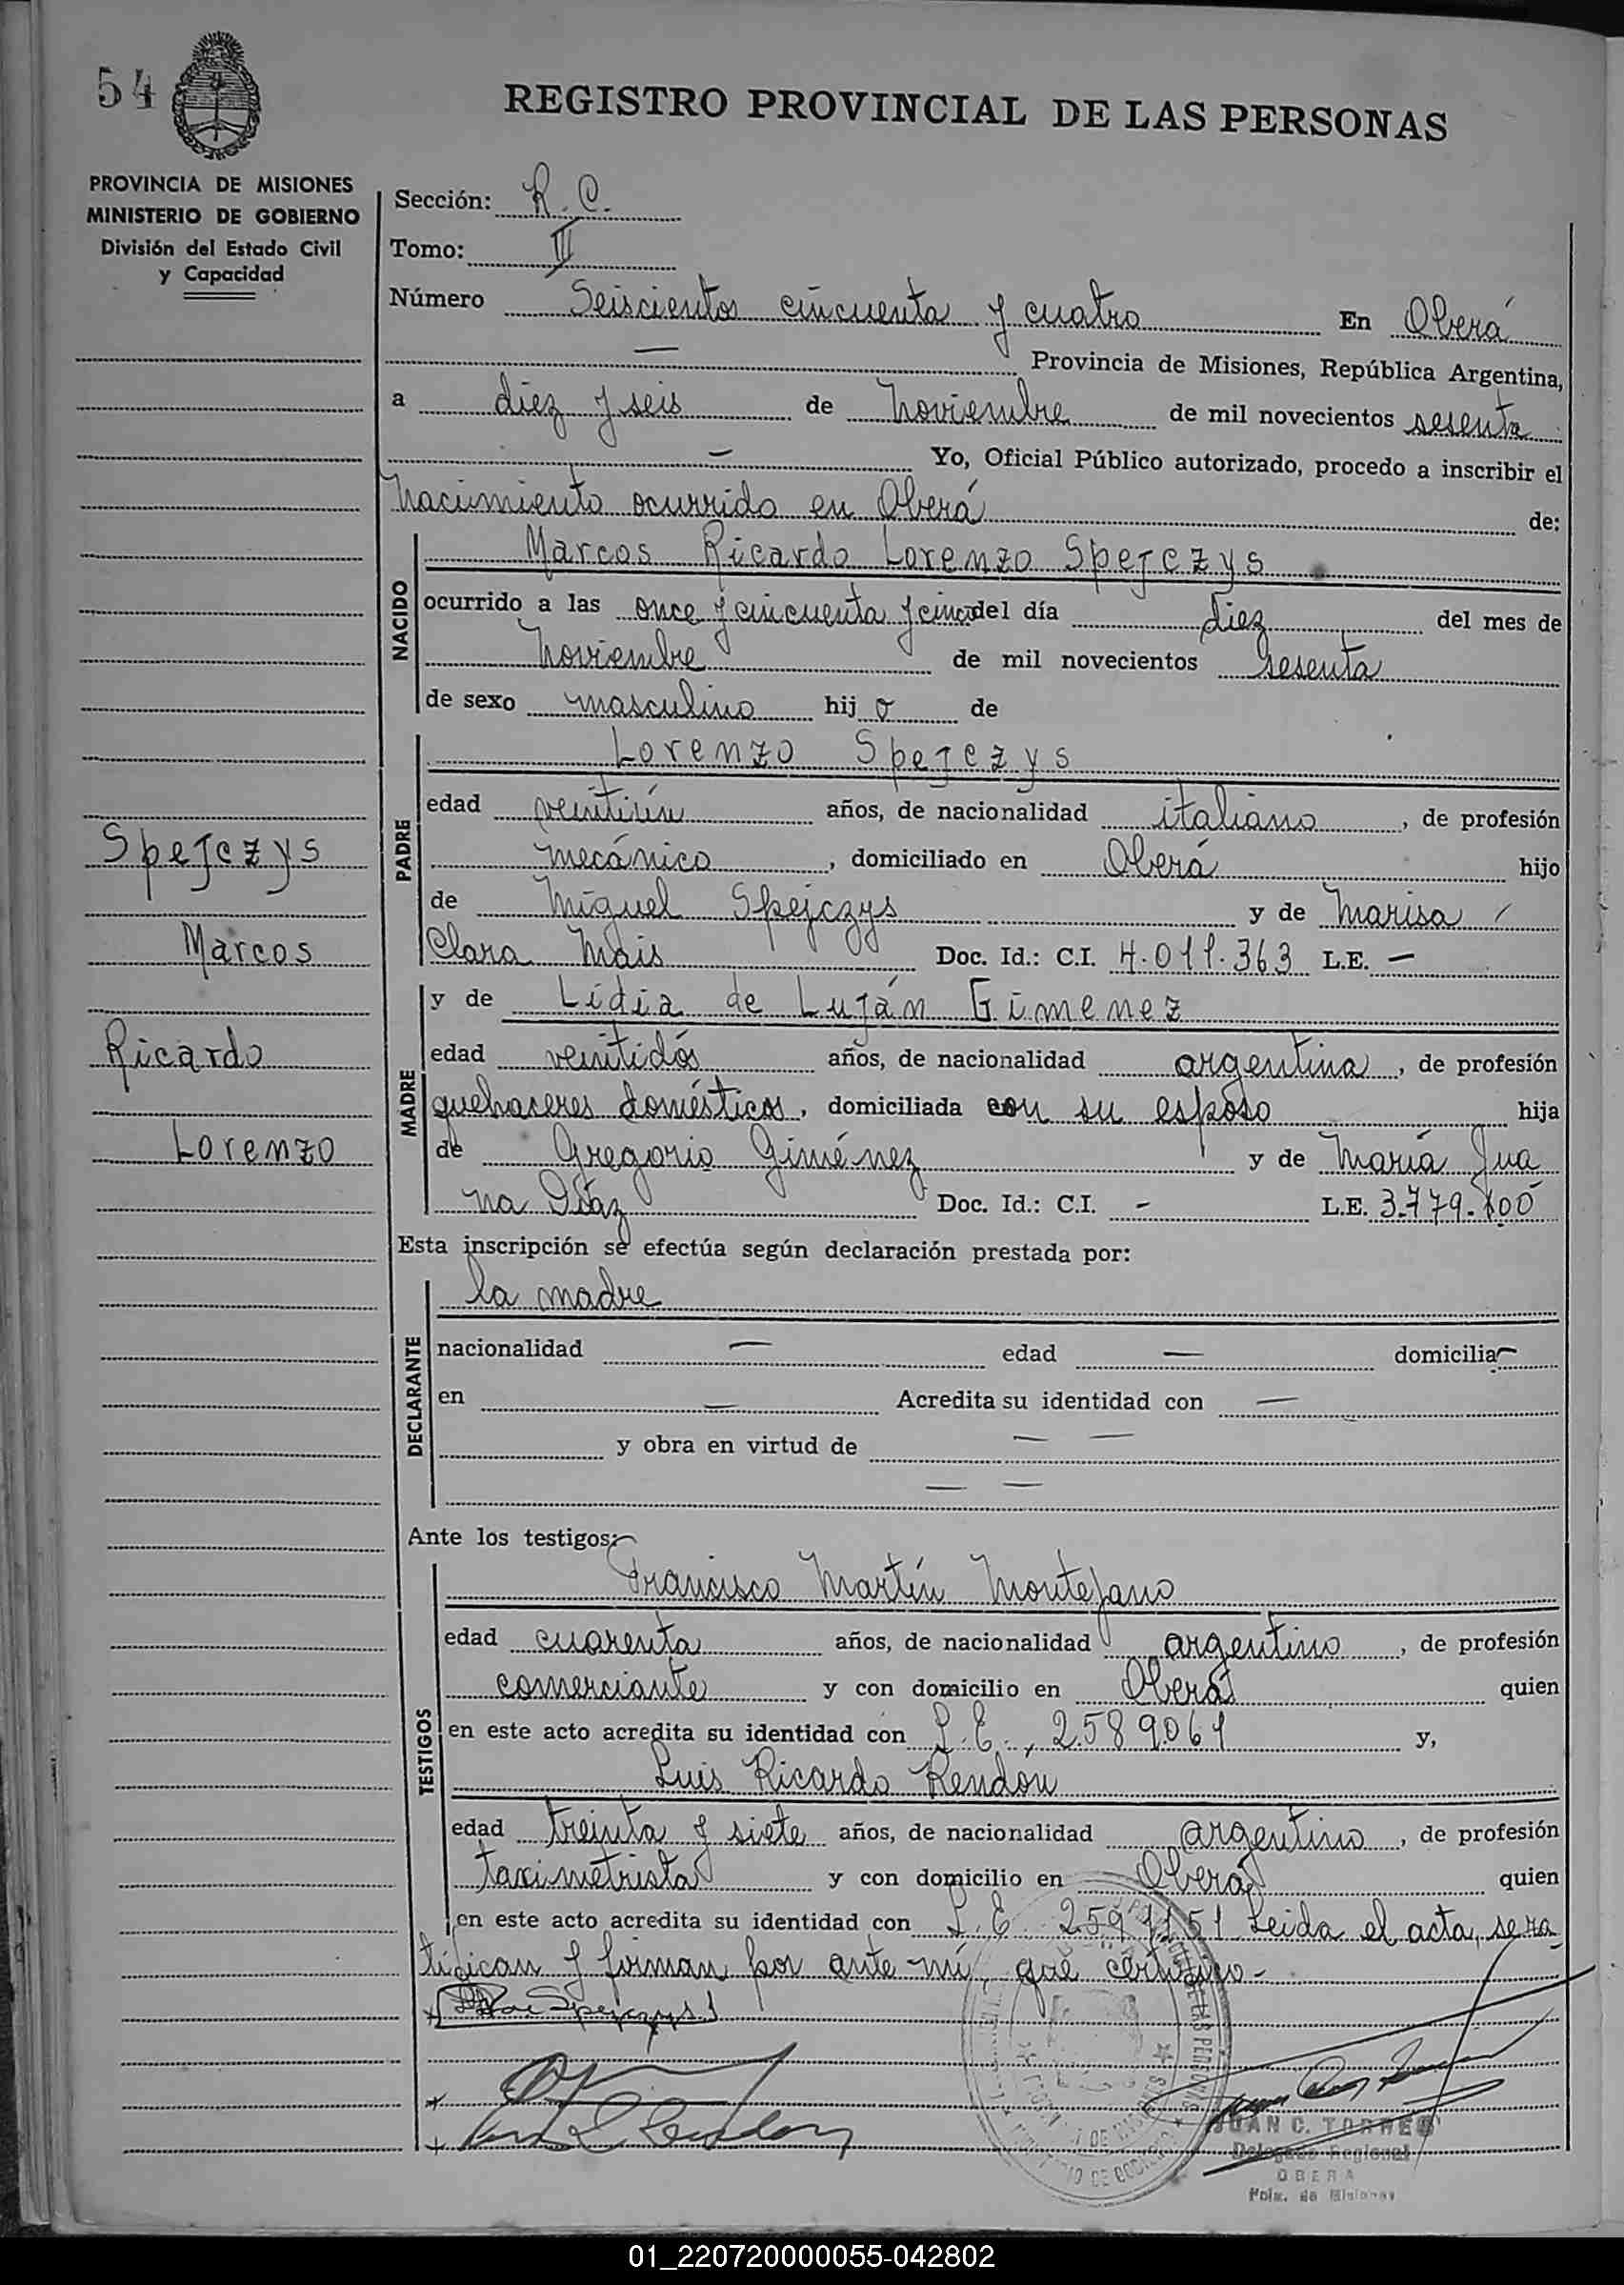 54
REGISTRO PROVINCIAL DE LAS PERSONAS
PROVINCIA DE MISIONES
MINISTERIO DE GOBIERNO
División del Estado Civil
y Capacidad
Sección: R. C.
Tomo: III
Número Seiscientos cincuenta y cuatro En Oberá
— Provincia de Misiones, República Argentina,
a diez y seis de Noviembre de mil novecientos sesenta
— Yo, Oficial Público autorizado, procedo a inscribir el
Nacimiento ocurrido en Oberá de:
NACIDO
Marcos Ricardo Lorenzo Spejczys
ocurrido a las once y cincuenta y cinco del día diez del mes de
Noviembre de mil novecientos sesenta
de sexo masculino hijo de
PADRE
Lorenzo Spejczys
edad veintiún años, de nacionalidad italiano, de profesión
mecánico, domiciliado en Oberá hijo
de Miguel Spejczys y de Marisa
Clara Mais Doc. Id.: C.I. 4.011.363 L.E. —
Spejczys
Marcos
Ricardo
Lorenzo
MADRE
y de Lidia de Luján Gimenez
edad veintidós años, de nacionalidad argentina, de profesión
quehaceres domésticos, domiciliada con su esposo hija
de Gregorio Giménez y de María Jua
na Díaz Doc. Id.: C.I. - L.E. 3.779.100
Esta inscripción se efectúa según declaración prestada por:
DECLARANTE
la madre
nacionalidad — edad — domicilia—
en — Acredita su identidad con —
y obra en virtud de — —
— —
Ante los testigos:
TESTIGOS
Francisco Martín Montejano
edad cuarenta años, de nacionalidad argentino, de profesión
comerciante y con domicilio en Oberá quien
en este acto acredita su identidad con L.E., 2.589.061 y,
Luis Ricardo Rendon
edad treinta y siete años, de nacionalidad argentino, de profesión
taximetrista y con domicilio en Oberá quien
en este acto acredita su identidad con L.E. Leida el acta, se ra
tifican y firman por ante mí, que certifico-
Spejczys
JUAN C. TORRES
Delegado Regional
OBERA
Pcia. de Misiones
01_220720000055-042802